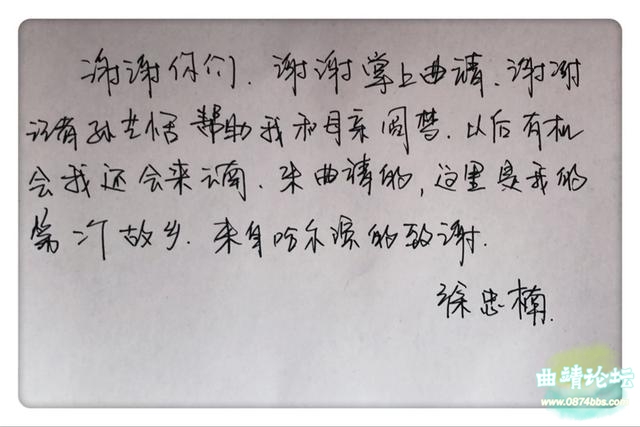 谢谢你们、谢谢掌上曲靖、谢谢
所有孙艺恬帮助我和母亲圆梦．以后有机
会我还会来云南．来曲靖的，这里是我的
第二个故乡．来自哈尔滨的致谢．
徐忠楠．
曲靖论坛
www.0874bbs.com